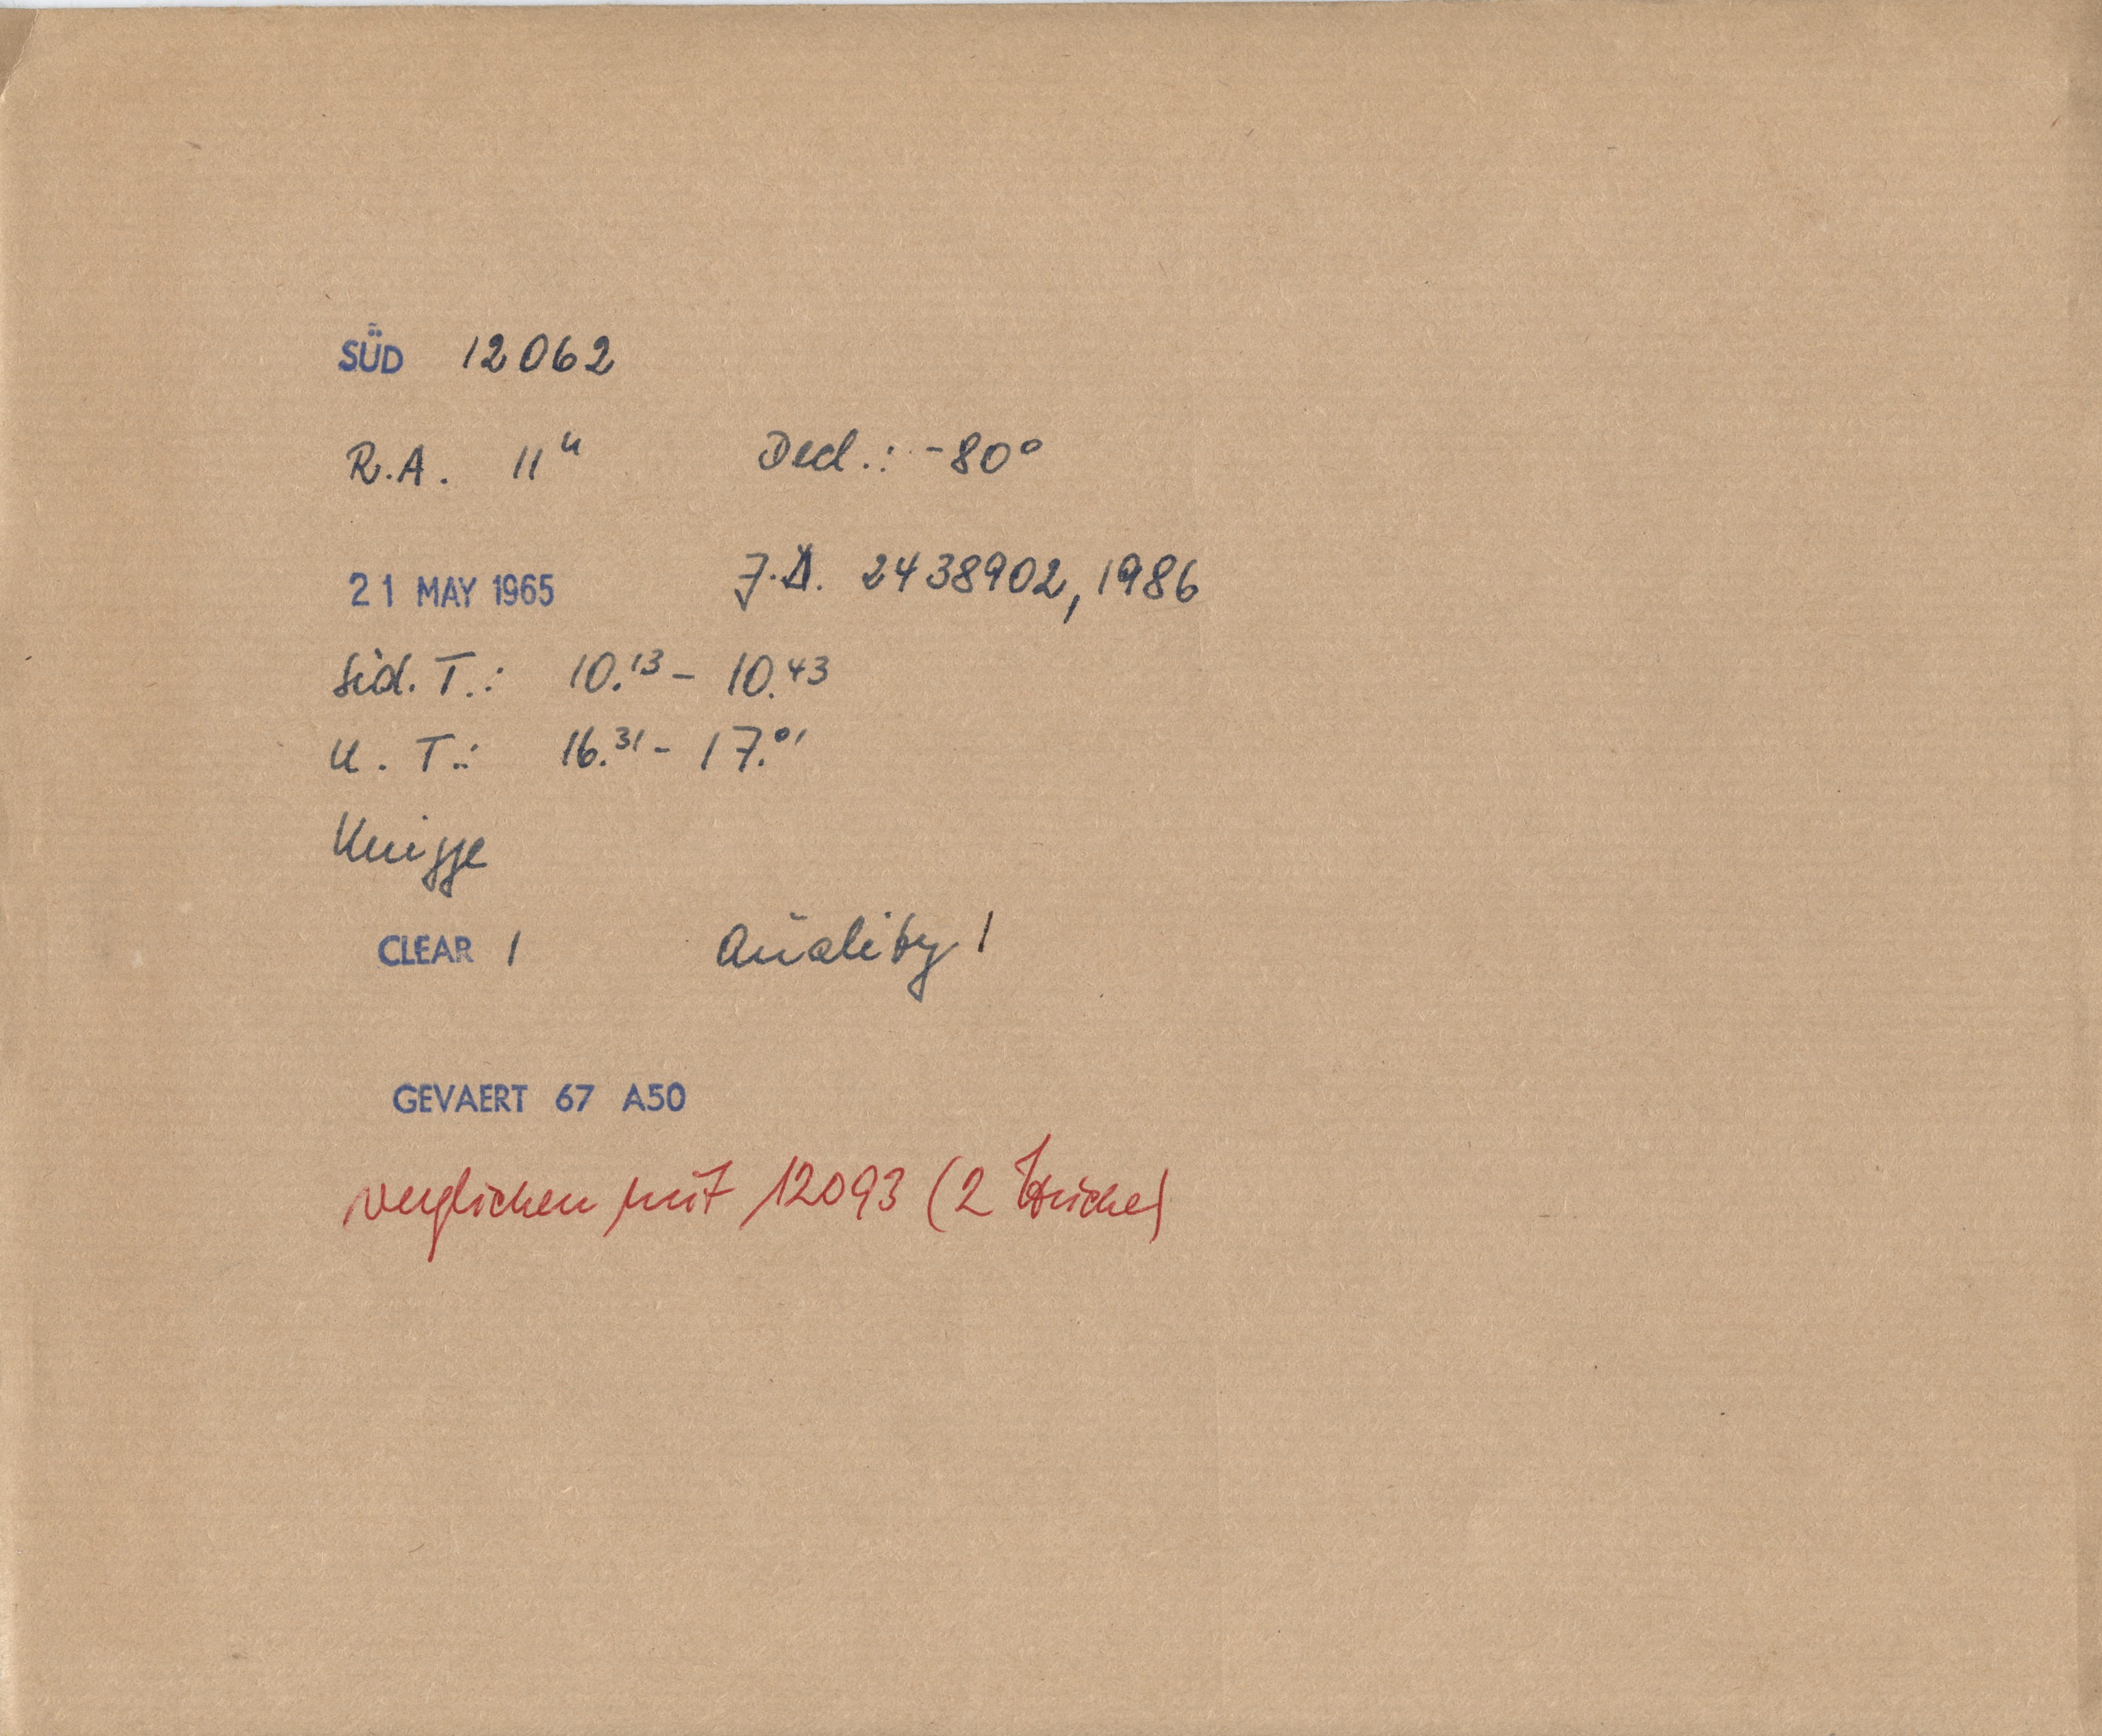 SÜD 12062
R.A. 11ʰ Decl.: -80°
21 MAY 1965 J.D. 2438902,1986
Sid. T.: 10.¹³ - 10.⁴³
U. T.: 16.³¹ - 17.⁰¹
Knigge
CLEAR 1 Quality 1
GEVAERT 67 A50
verglichen mit 12093 (2 Striche)